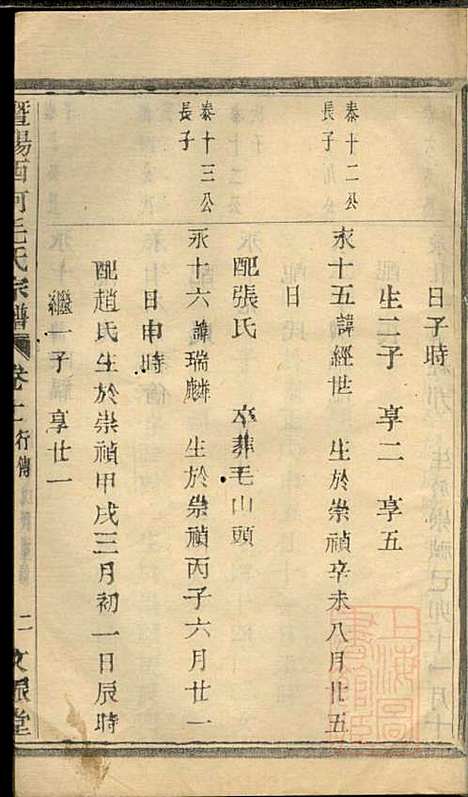 日子時
生三子 享二 享五
泰十二公
長子
永十五諱經世 生於崇禎辛未八月廿五
日
配張氏 卒葬毛山頭
泰十三公
長子
永十六諱瑞麟 生於崇禎丙子六月廿一
日申時
配趙氏生於崇禎甲戌三月初一日辰時
繼一子享廿一
暨陽酉河毛氏宗譜 卷十二 行傳 二 文源堂
上海圖書館藏